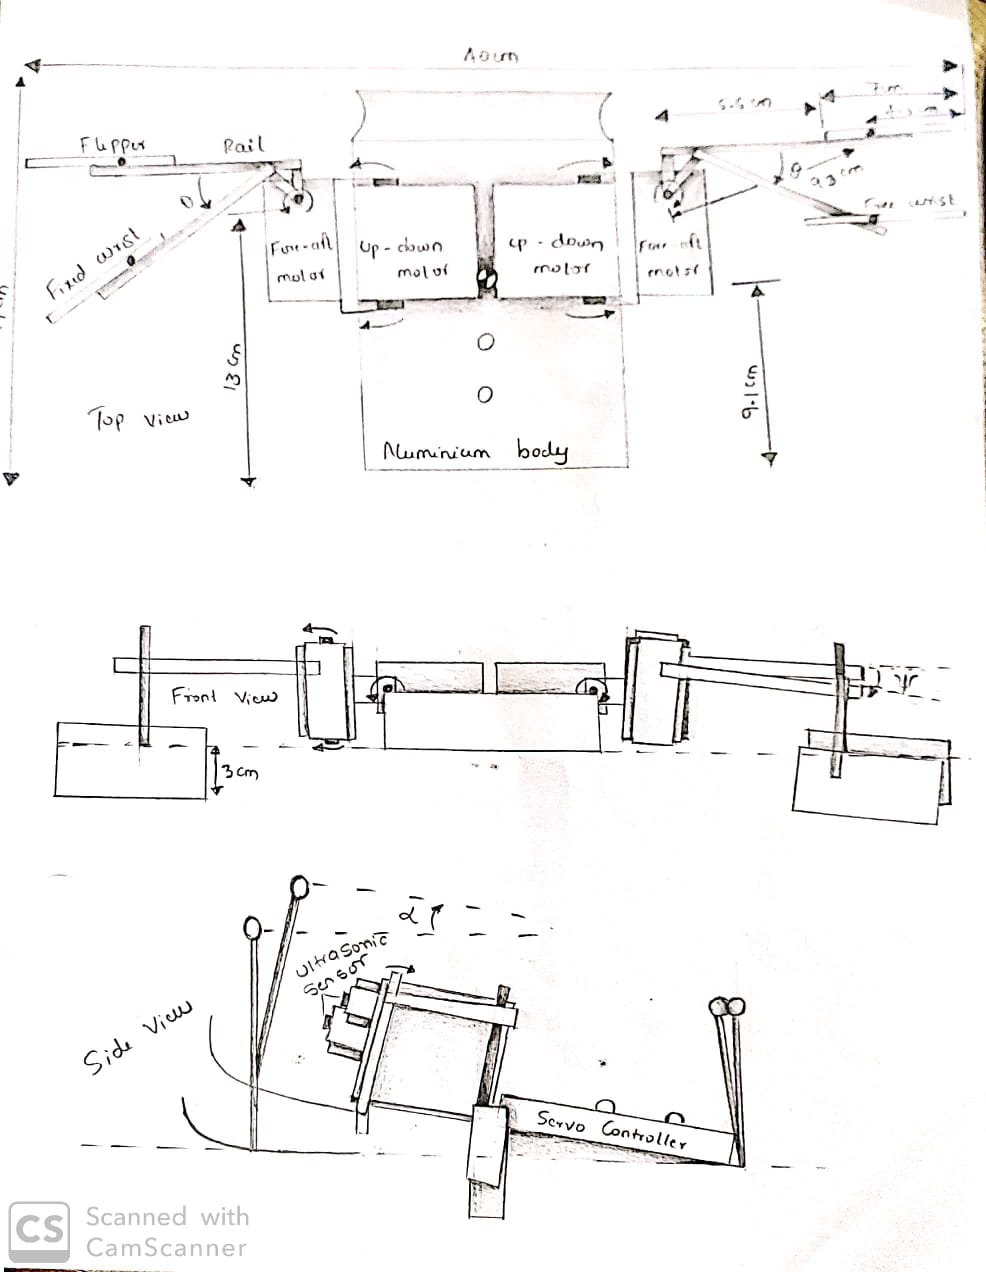 40cm
7cm
5.5 cm
Flipper
Rail
θ
θ
9.3 cm
Free wrist
Fixed wrist
Fore-aft
motor
Up-down
motor
up-down
motor
Fore-aft
motor
13 cm
9.1cm
Top view
Aluminium body
Front View
ψ
3 cm
α
Ultrasonic
Sensor
Side View
Servo Controller
CS
Scanned with
CamScanner